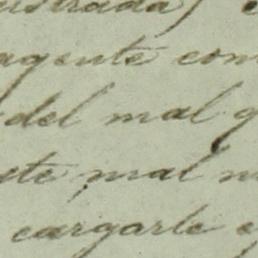 ustrada) e
agente com
del mal q
ste mal n
cargarle e